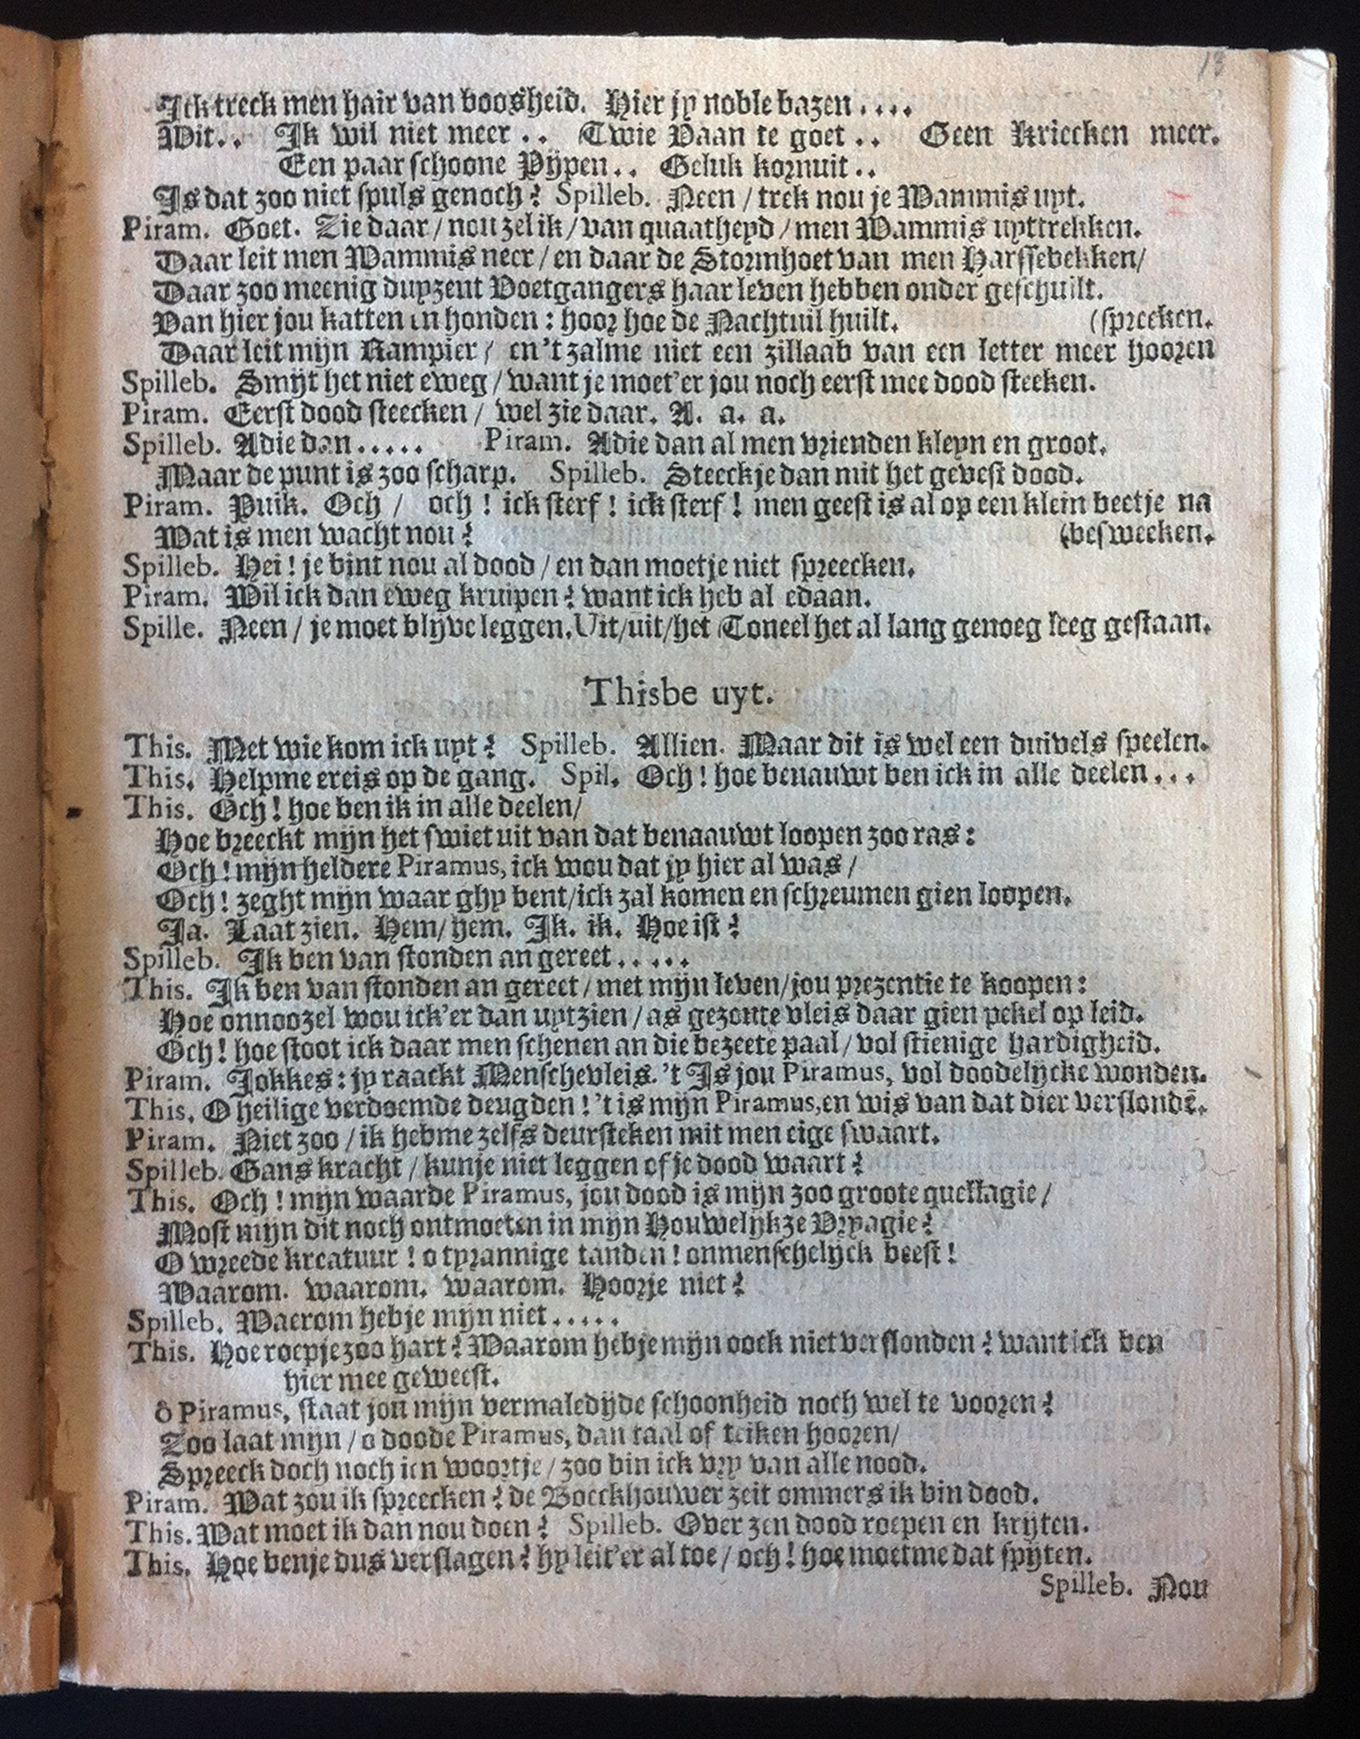 13
Ick treck men hair van boosheid. Hier jy noble bazen....
Wit.. Ik wil niet meer.. Twie Vaan te goet.. Geen Kriecken meer.
Een paar schoone Pijpen.. Geluk kornuit..
Is dat zoo niet spuls genoch? Spilleb. Neen / trek nou je Wammis uyt.
Piram. Goet. Zie daar / nou zel ik / van quaatheyd / men Wammis uyttrekken.
Daar leit men Wammis neer / en daar de Stormhoet van men Harssebekken /
Daar zoo meenig duyzent Voetgangers haar leven hebben onder geschuilt.
Van hier jou katten en honden: hoor hoe de Nachtuil huilt. (spreeken.
Daar leit mijn Rampier / en 't zalme niet een zillaab van een letter meer hooren
Spilleb. Smijt het niet eweg / want je moet'er jou noch eerst mee dood steeken.
Piram. Eerst dood steecken / wel zie daar. A. a. a.
Spilleb. Adie dan..... Piram. Adie dan al men vrienden kleyn en groot.
Maar de punt is zoo scharp. Spilleb. Steeckje dan mit het gevest dood.
Piram. Puik. Och / och! ick sterf! ick sterf! men geest is al op een klein beetje na
Wat is men wacht nou? (besweeken.
Spilleb. Hei! je bint nou al dood / en dan moetje niet spreecken.
Piram. Wil ick dan eweg kruipen? want ick heb al edaan.
Spille. Neen / je moet blijve leggen. Uit/uit/het Toneel het al lang genoeg leeg gestaan.
Thisbe uyt.
This. Met wie kom ick uyt? Spilleb. Allien. Maar dit is wel een duivels speelen.
This. Helpme ereis op de gang. Spil. Och! hoe benauwt ben ick in alle deelen...
This. Och! hoe ben ik in alle deelen/
Hoe breeckt mijn het swiet uit van dat benaauwt loopen zoo ras:
Och! mijn heldere Piramus, ick wou dat jy hier al was /
Och! zeght mijn waar ghy bent/ick zal komen en schreumen gien loopen.
Ja. Laat zien. Hem/hem. Ik. ik. Hoe ist?
Spilleb. Ik ben van stonden an gereet.....
This. Ik ben van stonden an gereet / met mijn leven/jou prezentie te koopen:
Hoe onnoozel wou ick'er dan uytzien / as gezonte vleis daar gien pekel op leid.
Och! hoe stoot ick daar men schenen an die bezeete paal / vol stienige hardigheid.
Piram. Jokkes: jy raackt Menschevleis. 't Is jou Piramus, vol doodelijcke wonden.
This. O heilige verdoemde deugden! 't is mijn Piramus, en wis van dat dier verslondē.
Piram. Niet zoo / ik hebme zelfs deursteken mit men eige swaart.
Spilleb. Gans kracht / kunje niet leggen of je dood waart?
This. Och! mijn waarde Piramus, jou dood is mijn zoo groote quellagie /
Most mijn dit noch ontmoeten in mijn Houwelijkze Vryagie?
O wreede kreatuur! o tyrannige tanden! onmenschelijck beest!
Waarom. waarom. waarom. Hoorje niet?
Spilleb. Waerom hebje mijn niet.....
This. Hoe roepje zoo hart? Waarom hebje mijn oock niet verslonden? want ick ben
hier mee geweest.
ô Piramus, staat jou mijn vermaledijde schoonheid noch wel te vooren?
Zoo laat mijn / o doode Piramus, dan taal of teiken hooren/
Spreeck doch noch ien woortje / zoo bin ick vry van alle nood.
Piram. Wat zou ik spreecken? de Boeckhouwer zeit ommers ik bin dood.
This. Wat moet ik dan nou doen? Spilleb. Over zen dood roepen en krijten.
This. Hoe benje dus verslagen? hy leit'er al toe / och! hoe moetme dat spijten.
Spilleb. Nou